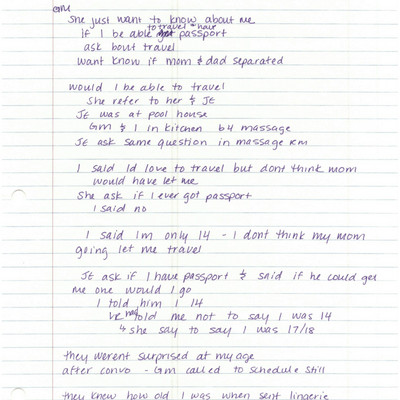 GM
She just want to know about me
if I be able to travel & have passport
ask bout travel
want know if mom & dad separated
would I be able to travel
She refer to her & JE
JE was at pool house
GM & I in kitchen b4 massage
JE ask same question in massage RM
I said Id love to travel but dont think mom
would have let me
She ask if I ever got passport
I said no
I said Im only 14 - I dont think my mom
going let me travel
JE ask if I have passport & said if he could get
me one would I go
I told him I 14
had told me not to say I was 14
↳ she say to say I was 17/18
they werent surprised at my age
after convo - GM called to schedule still
they knew how old I was when sent lingerie